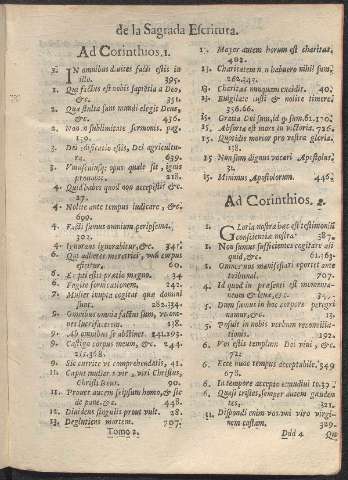 de la Sagrada Escritura.
Ad Corinthios. 1.
IN omnibus divites facti estis in
illo. 395.
1. Qui factus est nobis sapiētia a Deo,
&c. 351.
2. Quæ stulta sunt mundi elegit Deus,
&c. 436.
2. Non in sublimitate sermonis. pag.
139.
3. Dei ædificatio estis, Dei agricultu-
ra. 639.
3. Vnuscuiusq; opus quale sit, ignis
probabit. 218.
4. Quid habes quod non accepisti? &c.
27.
4. Nolite ante tempus iudicare, &c.
699.
4. Facti sumus omnium peripsema.
302.
4. Ignorans ignorabitur, &c. 345.
6. Qui adhæret meretrici, unum corpus
efficitur. 60.
6. Empti estis pretio magno. 34
6. Fugite fornicationem. 242.
7. Mulier innupta cogitat quæ domini
sunt. 282.334
9. Omnibus omnia factus sum, ut om-
nes lucrifacerem. 338.
9. Ab omnibus se abstinet. 241.293.
9. Castigo corpus meum, &c. 244.
215.368.
9. Sic currite ut comprehendatis. 41.
11. Caput mulier vir, viri Christus,
Christi Deus. 90.
11. Probet autem seipsum homo, & sic
de pane. &c. 448.
12. Dividens singulis prout vult. 28.
13. Deglutiens mortem. 707.
Tomo 2.
13. Maior autem horum est charitas.
402.
13. Charitatem non habuero nihil sum.
262.343.
13. Charitas nunquam excidit. 40.
15. Evigilate iusti & nolite timere.
356.66.
15. Gratia Dei sum, id quod sum. 61.170.
15. Absorta est mors in victoria. 726.
15. Quotidie morior pro vestra gloria.
138.
15 Non sum dignus vocari Apostolus.
31.
15. Minimus Apostolorum 446.
Ad Corinthios. 2.
1. Gloria nostra hæc est testimoniū
conscientiæ nostræ. 387.
2. Non sumus sufficientes cogitare ali
quid, &c. 61.163.
2. Omnes nos manifestari oportet ante
tribunal. 707.
4. Id quod in præsenti est momenta-
neum & leve, &c.
5. Dum sumus in hoc corpore peregri
namur, &c. 13.
5. Posuit in nobis verbum reconcilia-
tionis. 192.
6. Vos estis templum Dei vivi, &c.
72.
6. Ecce nunc tempus acceptabile. 349
678.
6. In tempore accepto exaudivi te. 37.
6. Quasi tristes, semper autem gauden
tes. 321.
11. Dispondi enim vos uni viro virgi-
nem castam. 329.
Ddd 4 Qui